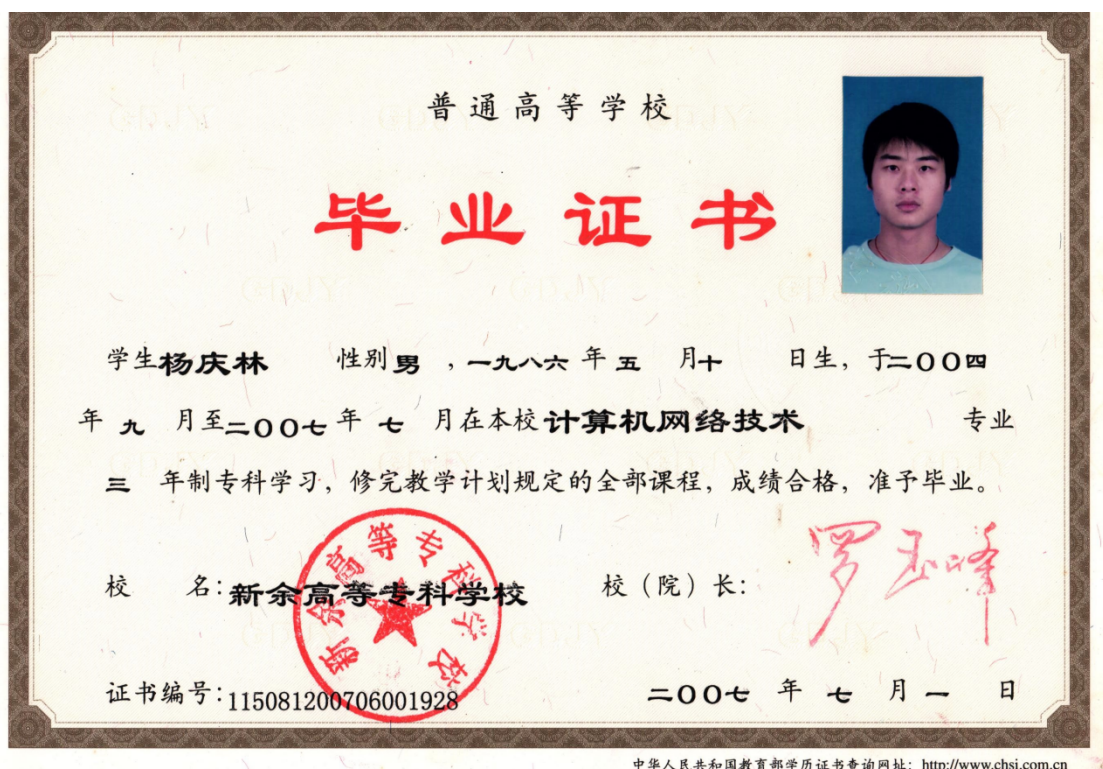 普通高等学校
毕业证书
学生杨庆林 性别男，一九八六年五月十日生，于二〇〇四
年九月至二〇〇七年七月在本校计算机网络技术 专业
三年制专科学习，修完教学计划规定的全部课程，成绩合格，准予毕业。
新余高等专科学校
校 名：新余高等专科学校 校（院）长：罗玉峰
证书编号：115081200706001928 二〇〇七年七月一日
中华人民共和国教育部学历证书查询网址：http://www.chsi.com.cn